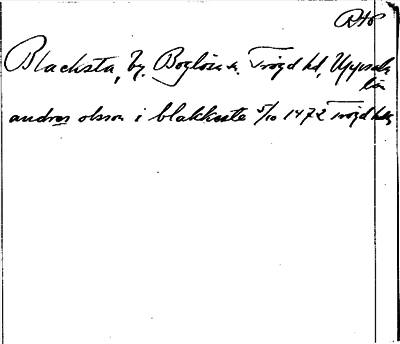 Blacksta, by. Boglösa s. Trögd hd, Uppsala
län
andres olsson i blakkesta 5/10 1472 Trögd